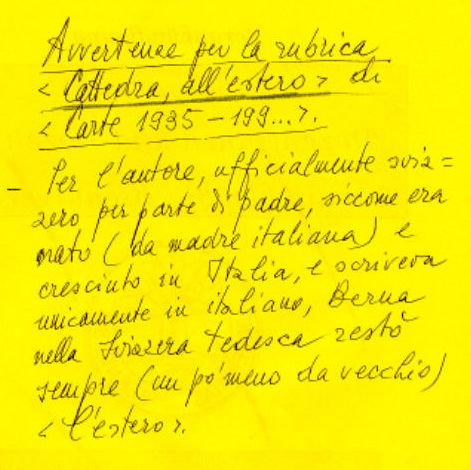 Avvertenze per la rubrica
< Cattedra, all'estero > di
< Carte 1935 – 199... >.
– Per l'autore, ufficialmente sviz=
zero per parte di padre, siccome era
nato (da madre italiana) e
cresciuto in Italia, e scriveva
unicamente in italiano, Berna
nella Svizzera tedesca restò
sempre (un pó meno da vecchio)
< l'estero >.